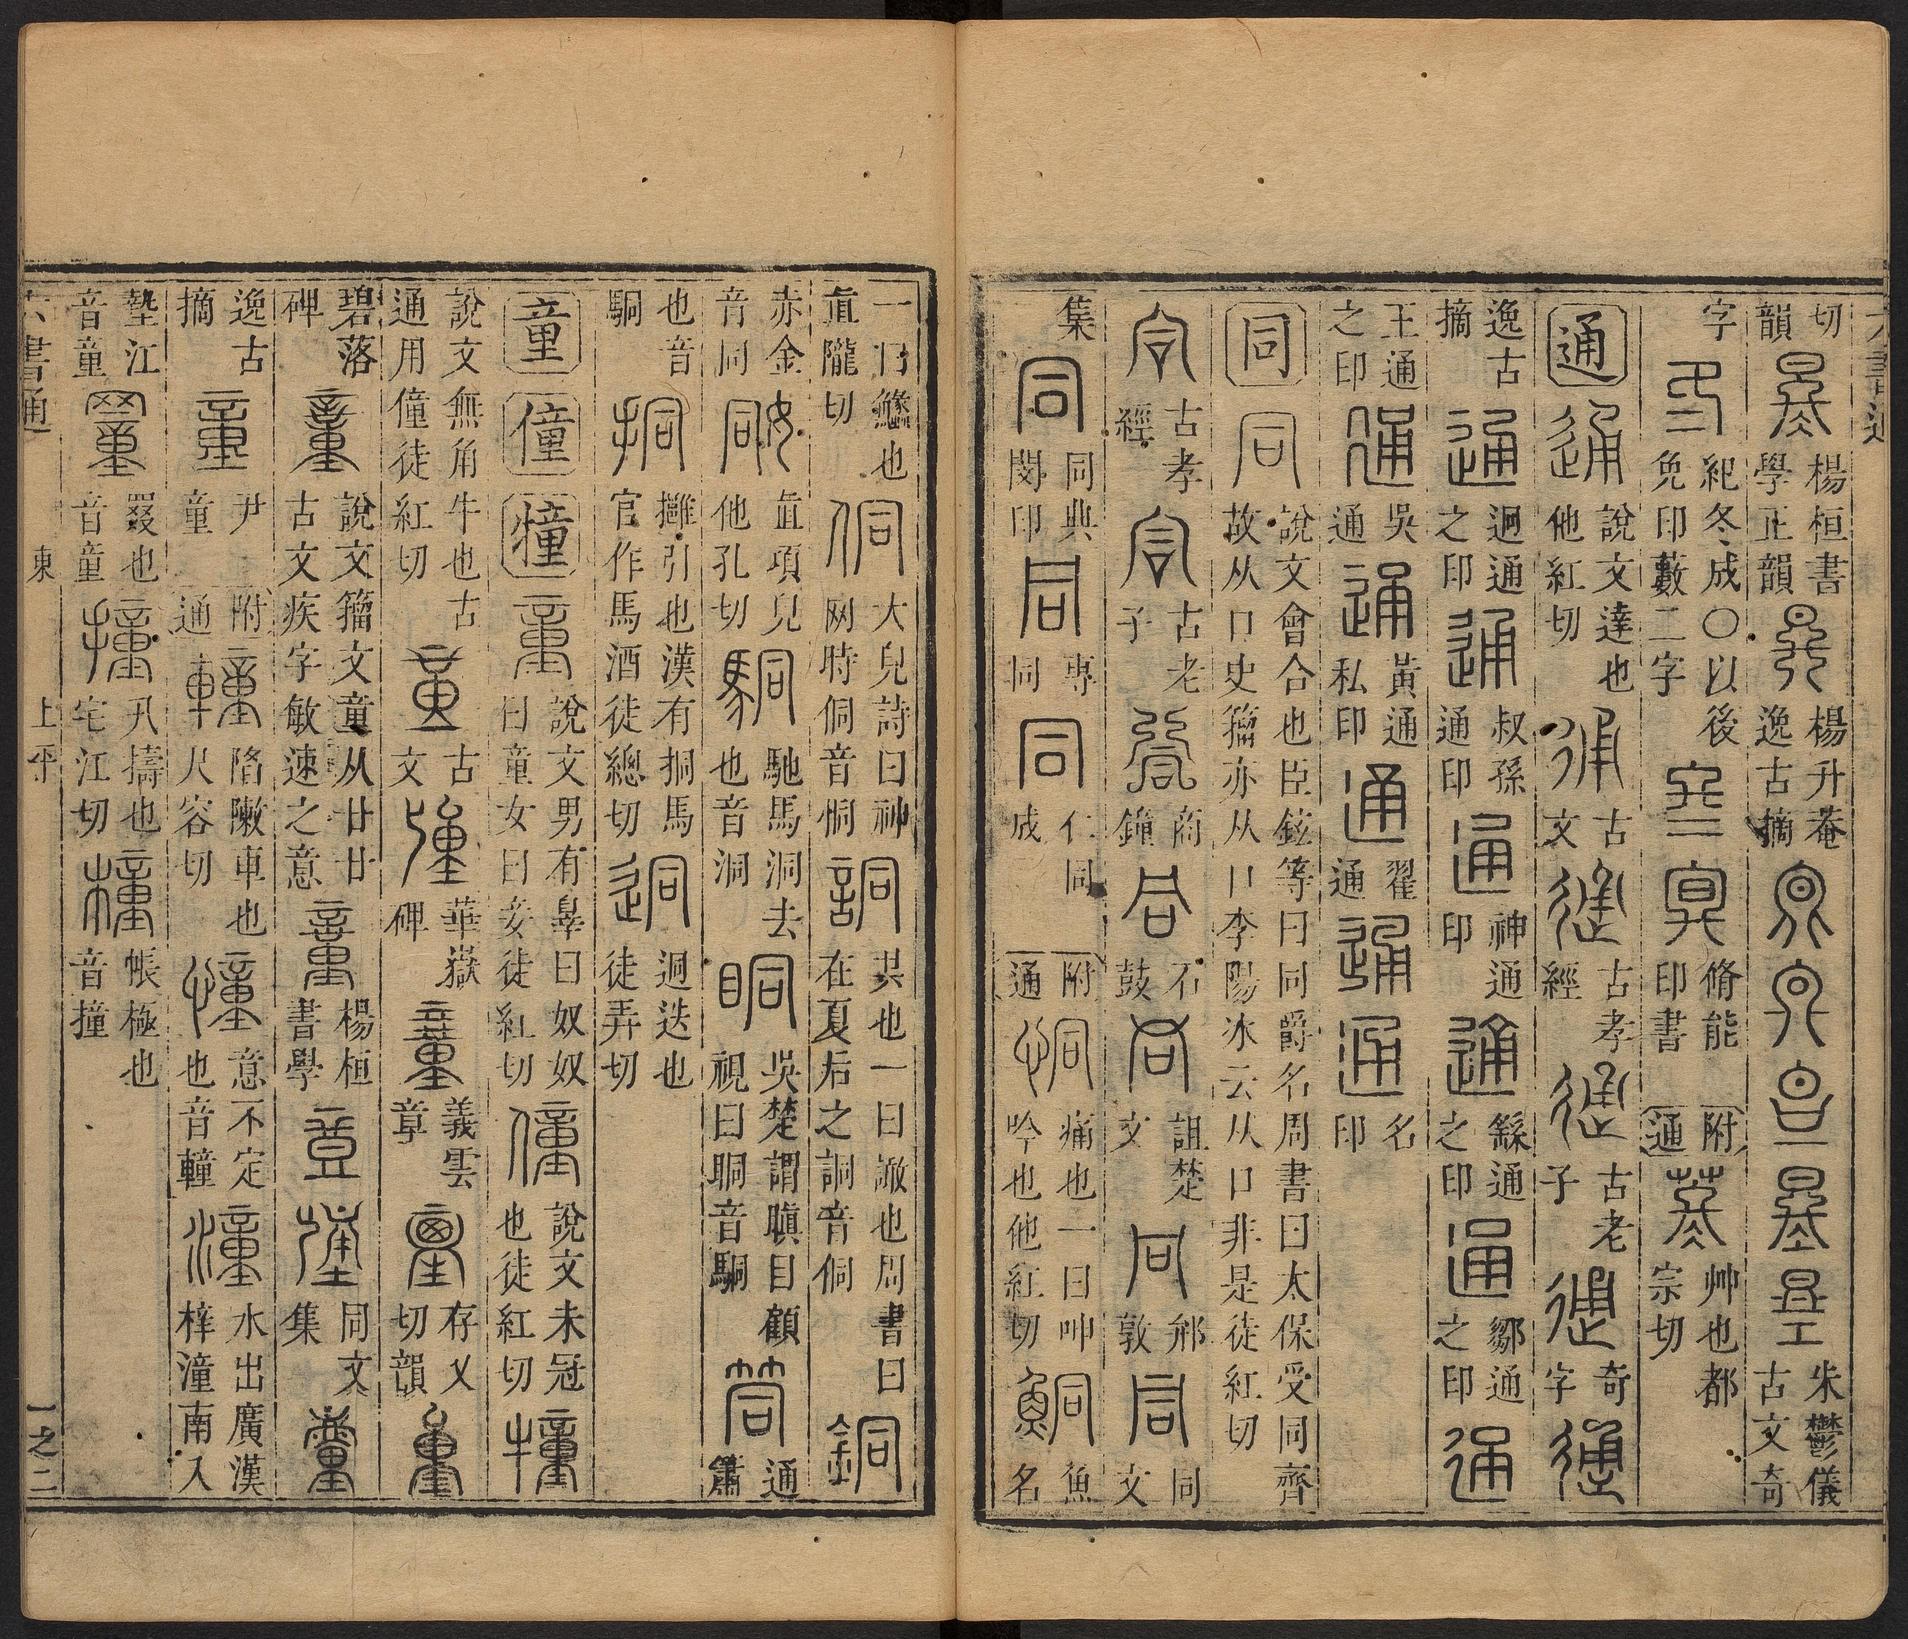 六書通
切韻 楊桓書學正韻 楊升菴逸古摘 朱鬱儀古文奇
字 紀冬成○以後免印藪二字 脩能印書 附通 苳 艸也都宗切
通 通 說文達也他紅切 古文 古孝經 古老子 奇字 通
逸古摘 通 迵通之印 通 叔孫通印 通 神通印 通 繇通之印 通 鄒通之印 通
王通之印 通 吳通 通 黃通私印 通 翟通 通 通 名印
同 同 說文會合也臣鉉等曰同爵名周書曰太保受同齊故从口史籀亦从口李陽冰云从口非是徒紅切
古孝經 古老子 商鐘 石鼓 詛楚文 邢敦 同文
集 同 同典閔印 同 專同 同 仁同成 附通 恫 痛也一曰呻吟也他紅切 鮦 魚名
一曰鱶也直隴切 侗 大皃詩曰神网時侗音恫 詷 共也一曰譀也周書曰在夏后之詷音侗 銅
赤金音同 姛 直項皃他孔切 駧 馳馬洞去也音洞 眮 吳楚謂瞋目顧視曰眮音駧 筒 通簫
也音駧 挏 攤引也漢有挏馬官作馬酒徒總切 迵 迵迭也徒弄切
童 僮 犝 童 說文男有辠曰奴奴曰童女曰妾徒紅切 僮 說文未冠也徒紅切 犝
說文無角牛也古通用僮徒紅切 古文 華嶽碑 義雲章 存乂切韻
碧落碑 說文籀文童从廿廿古文疾字敏速之意 楊桓書學 同文集
逸古摘 童 尹童 附通 𨎴 陷敶車也尺容切 憧 意不定也音𨎴 潼 水出廣漢梓潼南入
墊江音童 罿 罬也音童 撞 卂擣也宅江切 橦 帳極也音撞
六書通 東 上平 一之二